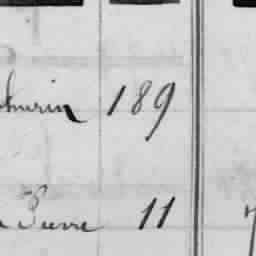 thurin 189
Pierre 11